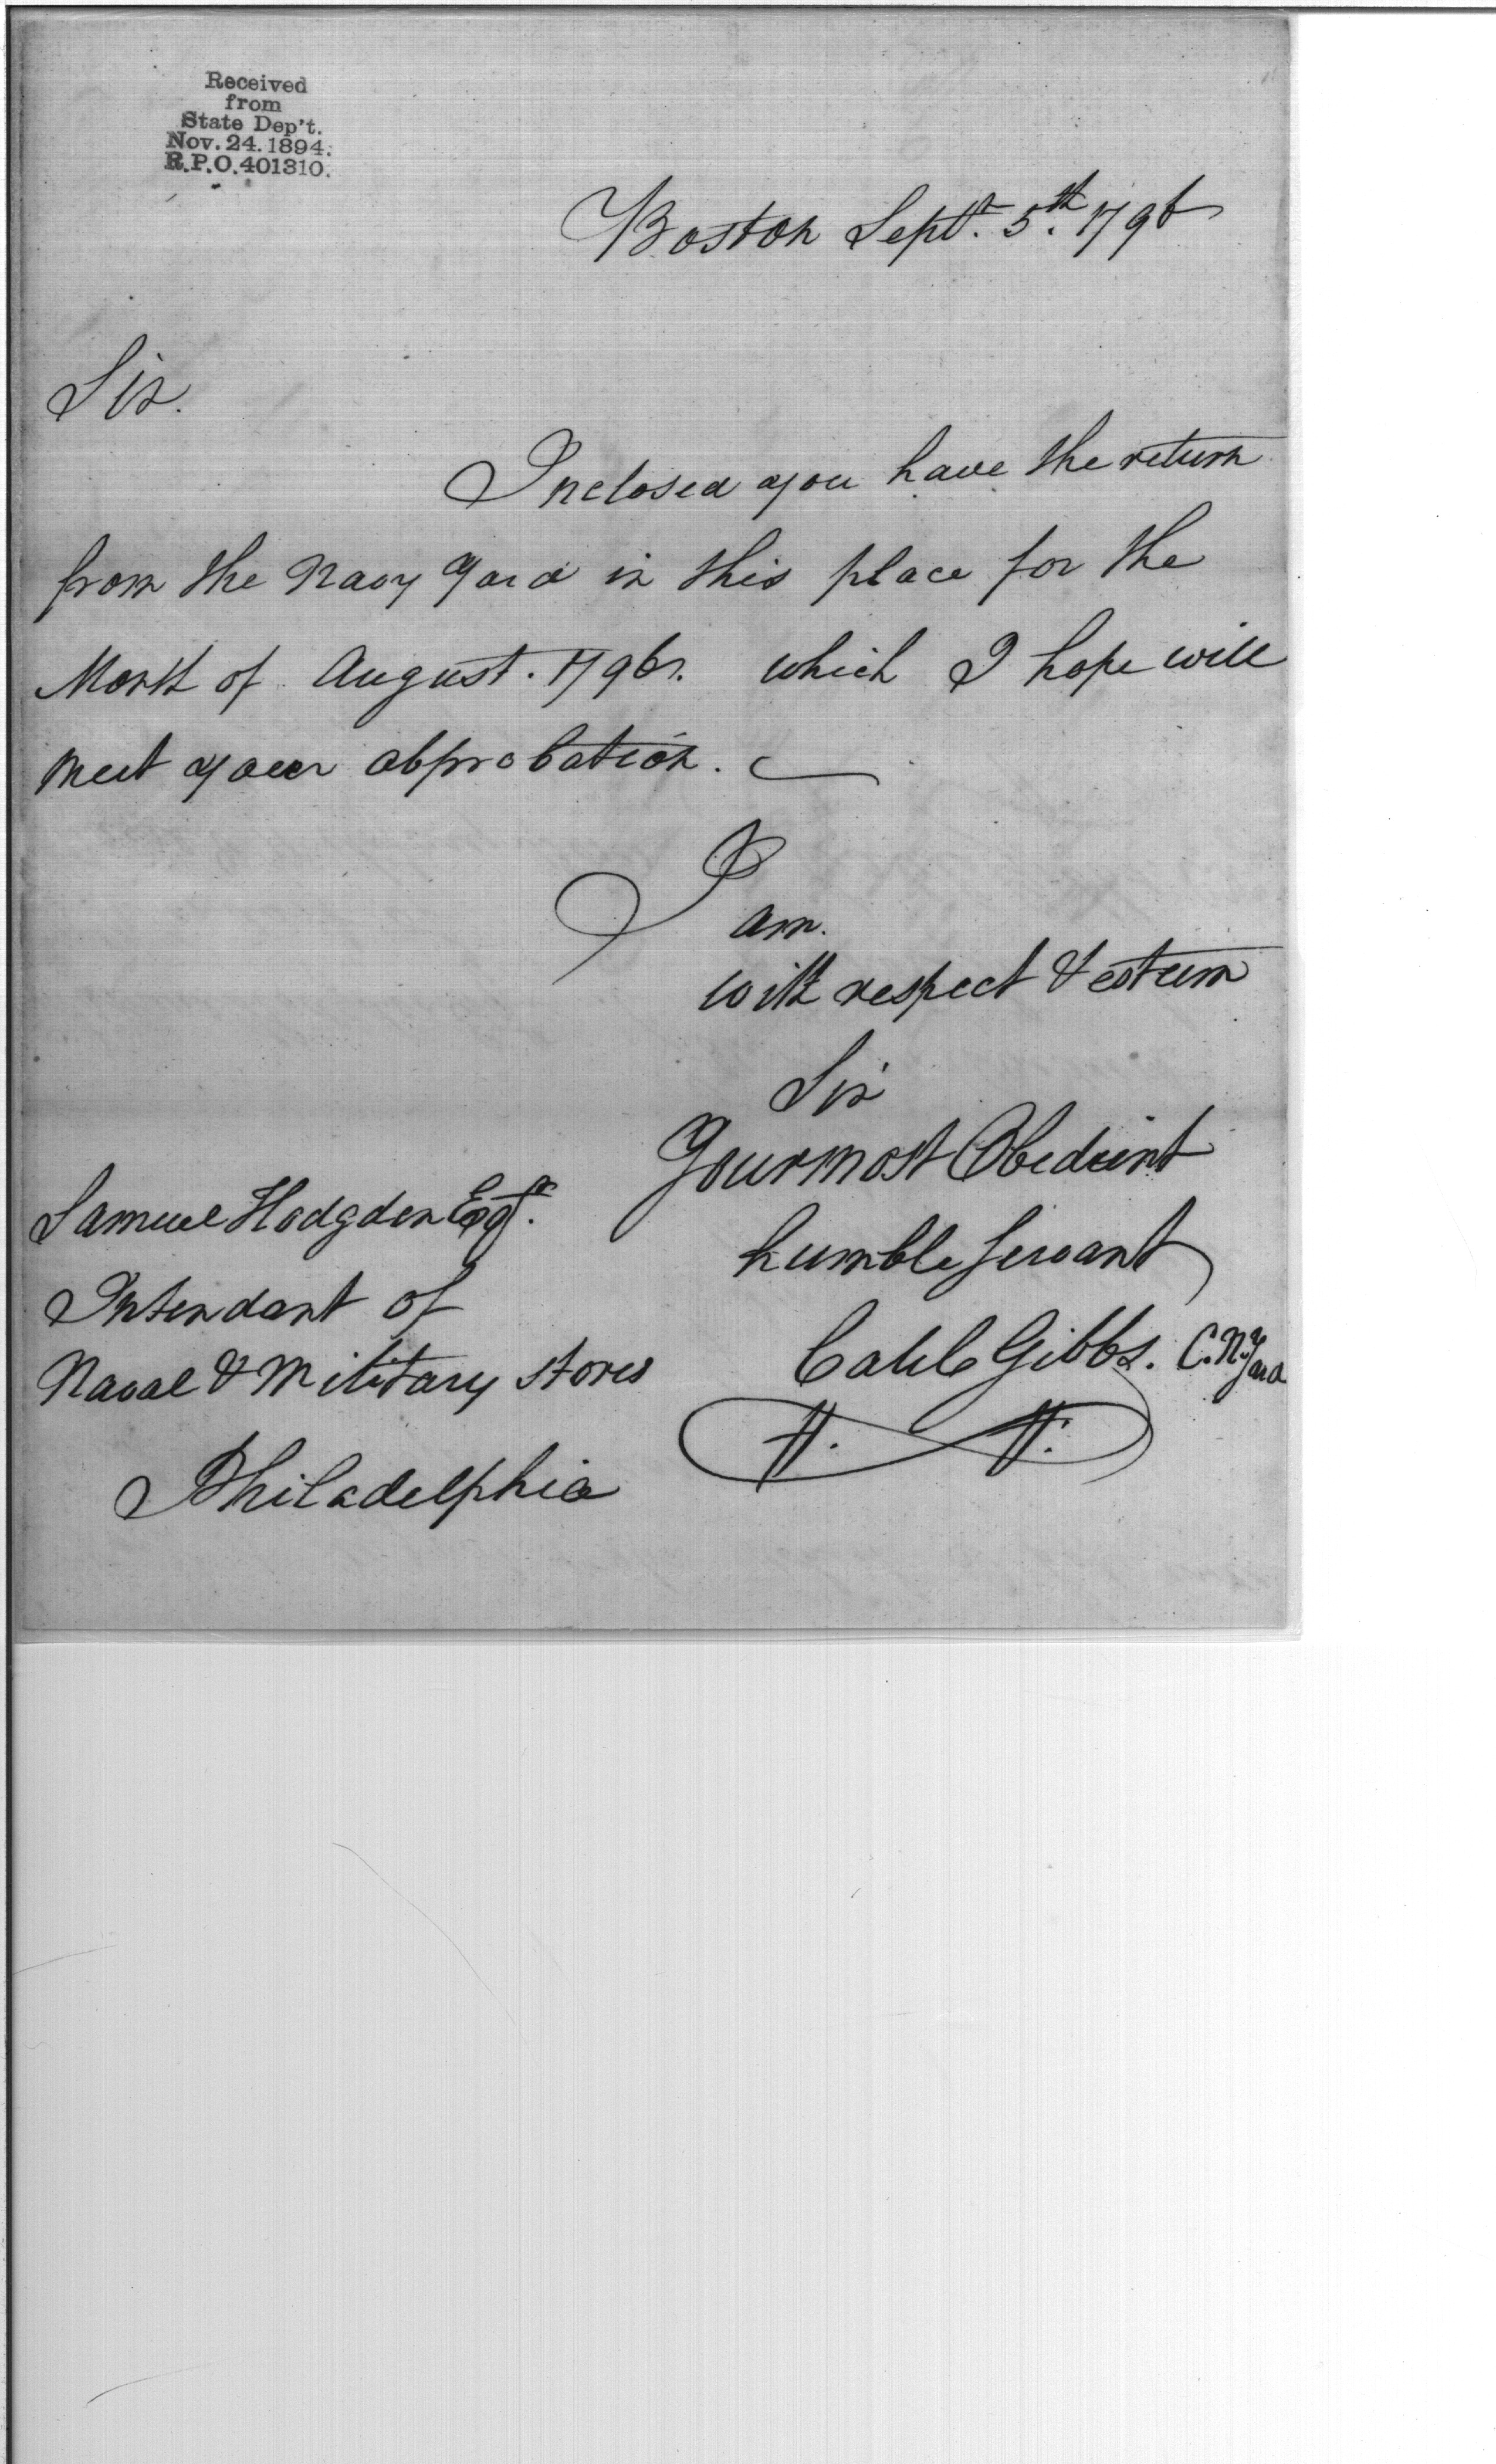 Received
from
State Dep't.
Nov. 24. 1894.
R.P.O. 401310.
Boston Sept.r 5.th 1796
Sir.
Inclosed you have the return
from the Navy Yard in this place for the
Month of August. 1796. which I hope will
meet your approbation.
I
am.
with respect & esteem
Sir
Your most Obedient
humble Servant
Caleb Gibbs. C. N. Yard
Samuel Hodgden Esqr.
Intendant of
Naval & Military Stores
Philadelphia